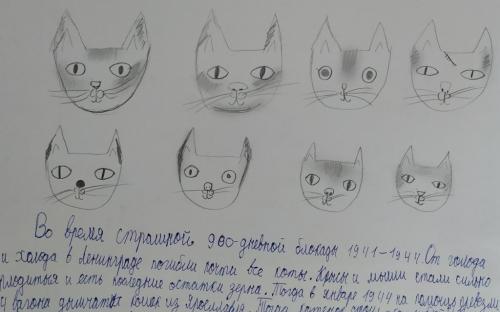 Во время страшной 900-дневной блокады 1941-1944. От голода
и холода в Ленинграде погибли почти все коты. Крысы и мыши стали сильно
плодиться и есть последние остатки зерна. Тогда в январе 1944 на помощь
вагона дымчатых кошек из Ярославля. Тогда